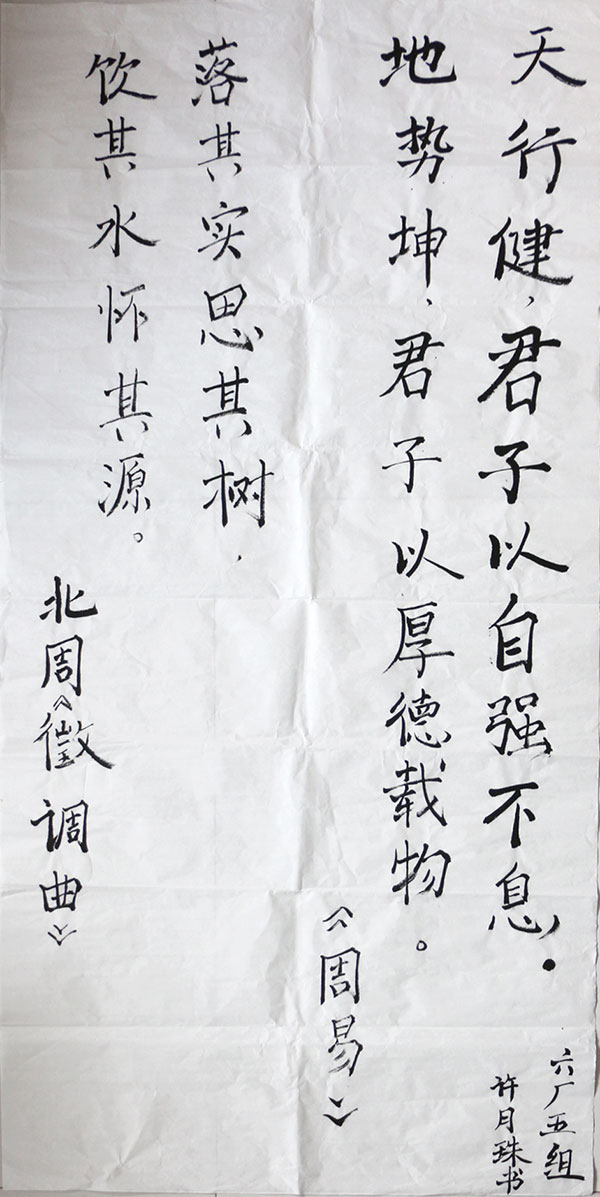 天行健,君子以自强不息.
地势坤,君子以厚德载物。
《周易》
落其实思其树,
饮其水怀其源。
北周《徵调曲》
六厂五组
许月珠书